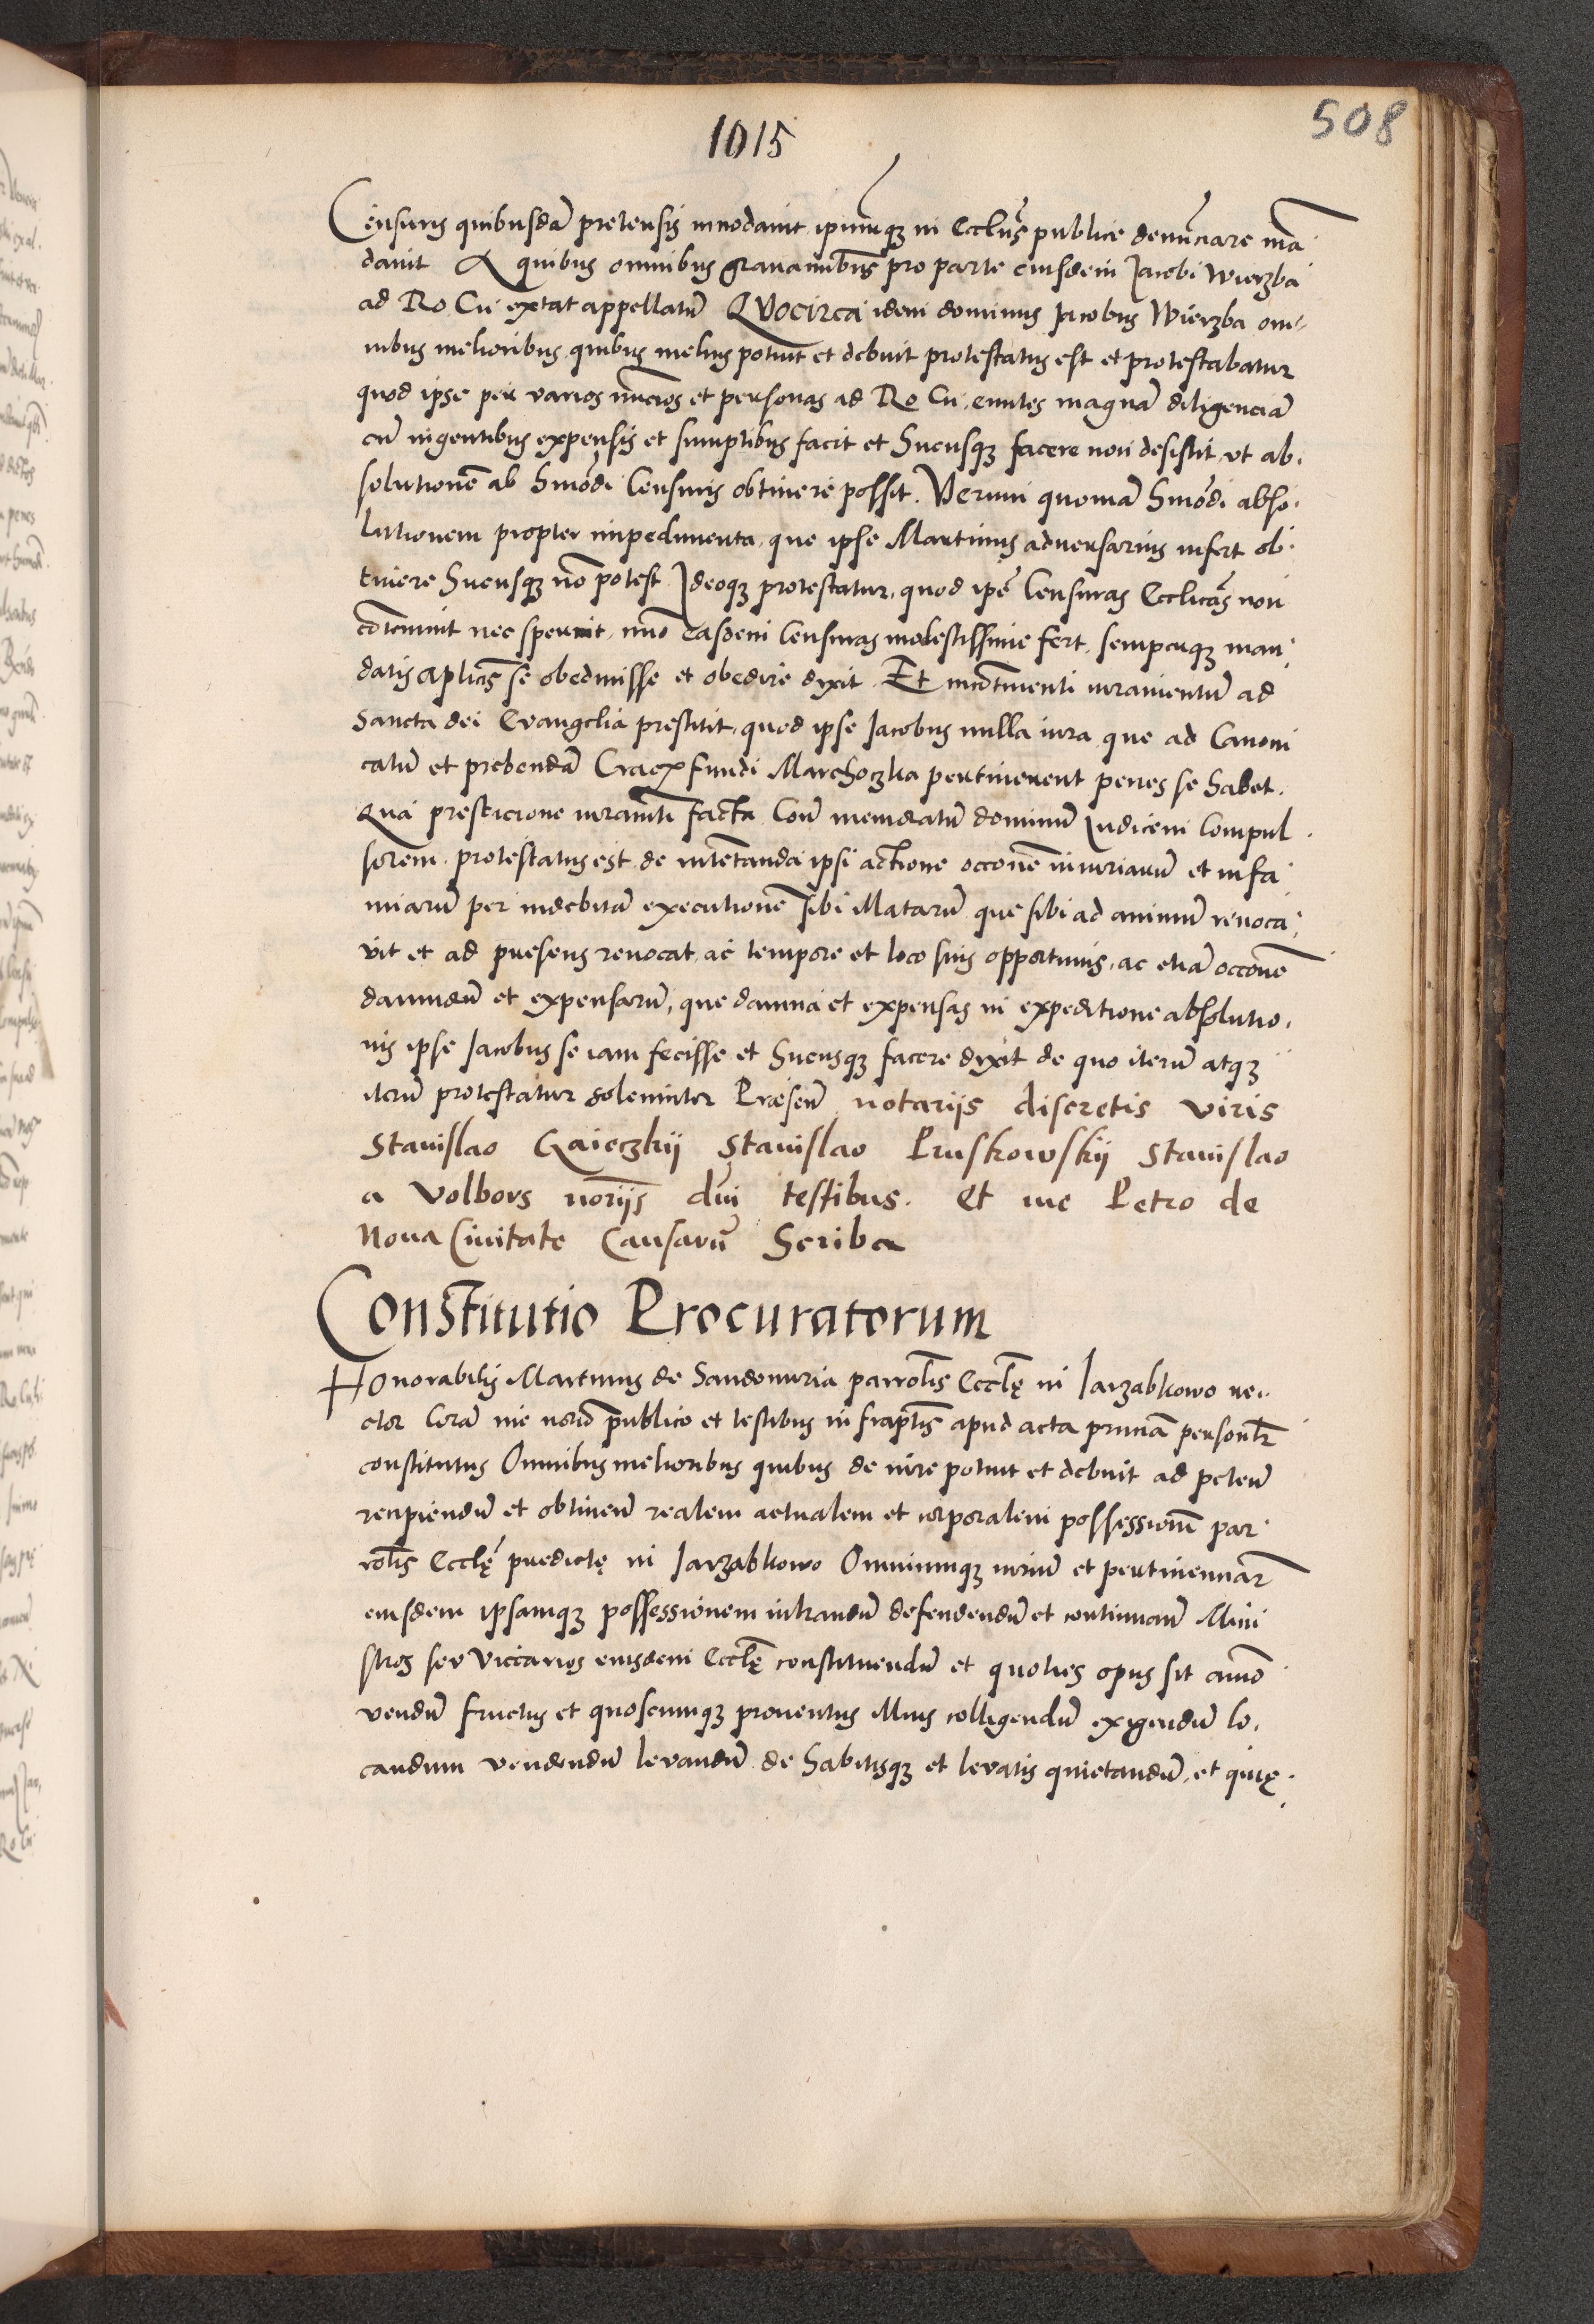 508
1015
Censuris quibusdā pretensis innodavit ipumqꝫ in Eccłus publice denūciare mā
davit A quibus omnibus gravaminbus pro parte eiusdem Jacobi Wierzba
ad Ro Cu extat appellatū QVocirca idem dominus Jacobus Wierzba om
nibus melioribus quibus melius potuit et debuit protestatus est et protestabatur
quod ipse per varios nūcios et personas ad Ro Cu. euntes magnā diligenciā
cū ingentibus expensis et sumptibus facit et hucusqꝫ facere non desistit ut ab.
solutionē ab hmōdi Censuris obtinere possit. Verum quoniā hmōdi abso.
lutionem propter impedimenta que ipse Martinus adversarius infert ob.
tinere hucusqꝫ nō potest Ideoqꝫ protestatur, quod ipē Censuras Eccłicās non
cōtemnit nec spernit, imo easdem Censuras modestissime fert, semperqꝫ man
datis apłicis se obedivisse et obedire dixit. Et incōtinenti iuramentū ad
Sancta dei Evangelia prestitit, quod ipse Jacobus nulla iura que ad Canoni
catū et prebendā Cracꝝ fundi Marchoczka pertinerent penes se habet.
Qua presticione iuramti facta Corā memoratū dominū Judicem Compul
sorem protestatus est de intētanda ipsi actione occōne iniuriarū et infa
miarū per indebitā executionē sibi illatarū que sibi ad animū revoca
vit et ad presens revocat, ac tempore et loco suis opportunis, ac etiā occōne
damnorū et expensarū, que damna et expensas in expeditione absolutio.
nis ipse Jacobus se iam fecisse et hucusqꝫ facere dixit de quo iterū atqꝫ
iterū protestatur solemniter Præsen̄ notariis discretis viris
Stanislao Gaieczkij Stanislao Pruskowskij Stanislao
a Volbors norijs dni testibus. Et me Petro de
Nova Civitate Causarū Scriba
Constitutio Procuratorum
Honorabilis Martinus de Sandomiria parrołis Eccłę in Jarzabkowo re
ctor Corā me norio publico et testibus infraptis apud acta prncia personłr
constitutus Omnibus melioribus quibus de iure potuit et debuit ad peten̄
recipiendū et obtinen̄ realem actualem et corporalem possessionē par
rołis Eccłę predictę in Jarzabkowo Omniumqꝫ iuriū et pertinenciar
eiusdem ipsamqꝫ possessionem intrandū defendendū et continuan̄ Mini
stros seu Viccarios eiusdem Eccłę constituendū et quoties opus sit amo
vendū fructus et quoscumqꝫ proventus illius colligendū exigendū lo.
candum vendendū levandū de habitisqꝫ et levatis quietandū, et quię